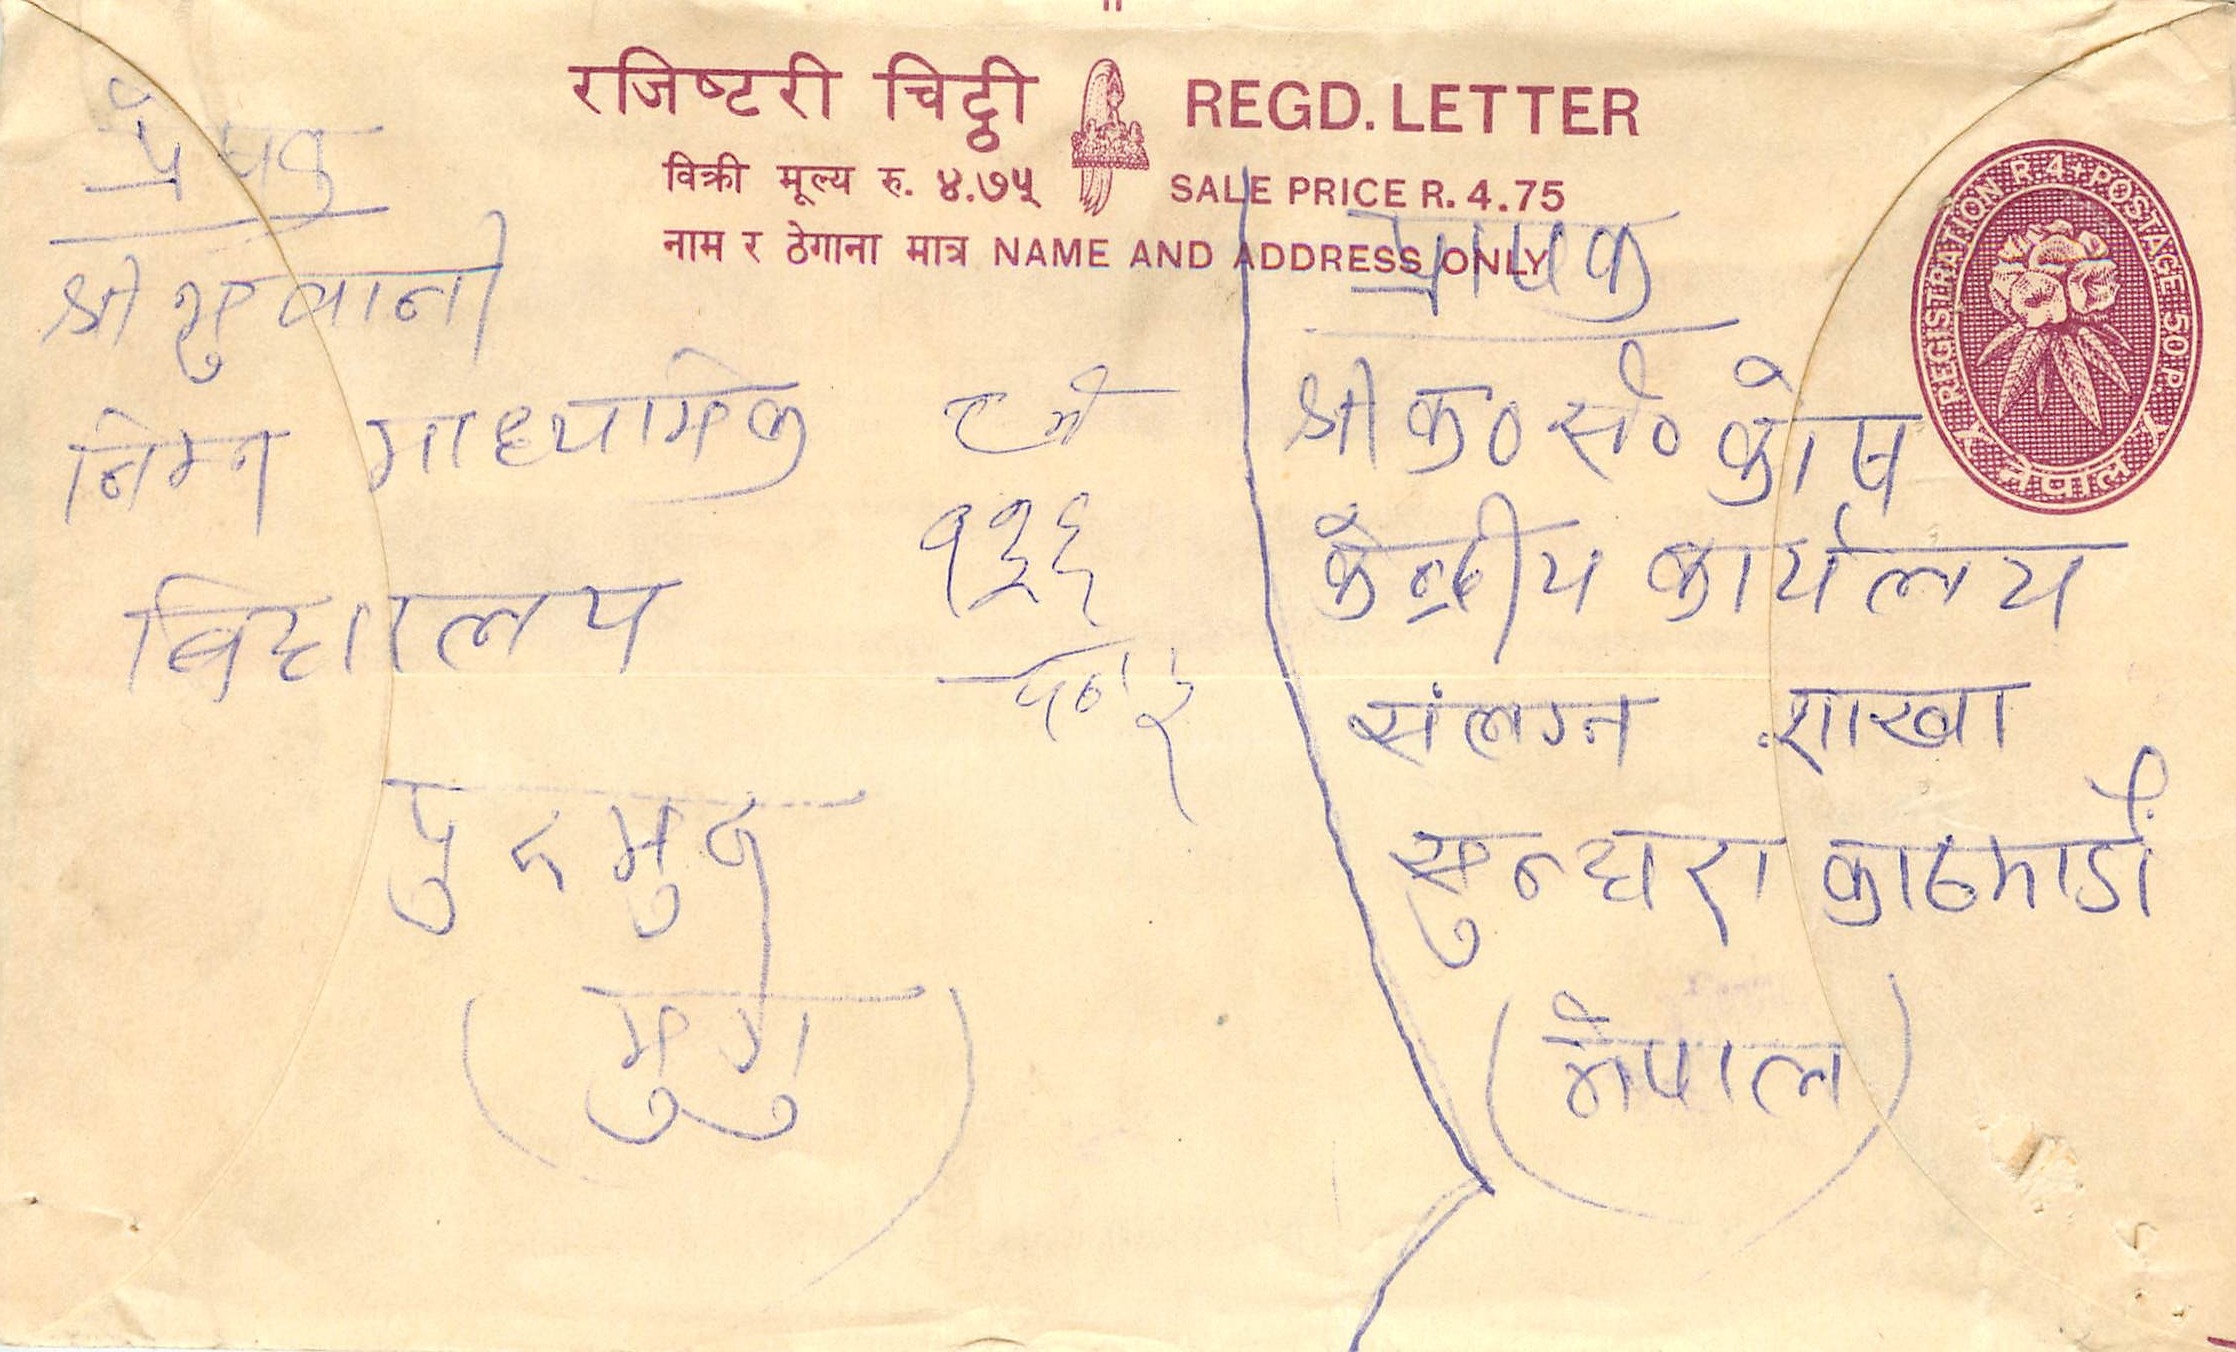 रजिष्टरी चिट्ठी REGD. LETTER
विक्री मूल्य रु. ४.७५ SALE PRICE R. 4.75
नाम र ठेगाना मात्र NAME AND ADDRESS ONLY
REGISTRATION R. 4 + POSTAGE 50 P.
नेपाल
प्रेषक
श्री
निम्न माध्यामिक
विद्यालय
पुरुमुरु
(मुगु)
१३६
प्रापक
श्री क० सं० कोष
केन्द्रीय कार्यलय
संलग्न शाखा
सुन्धारा काठमाडौं
(नेपाल)